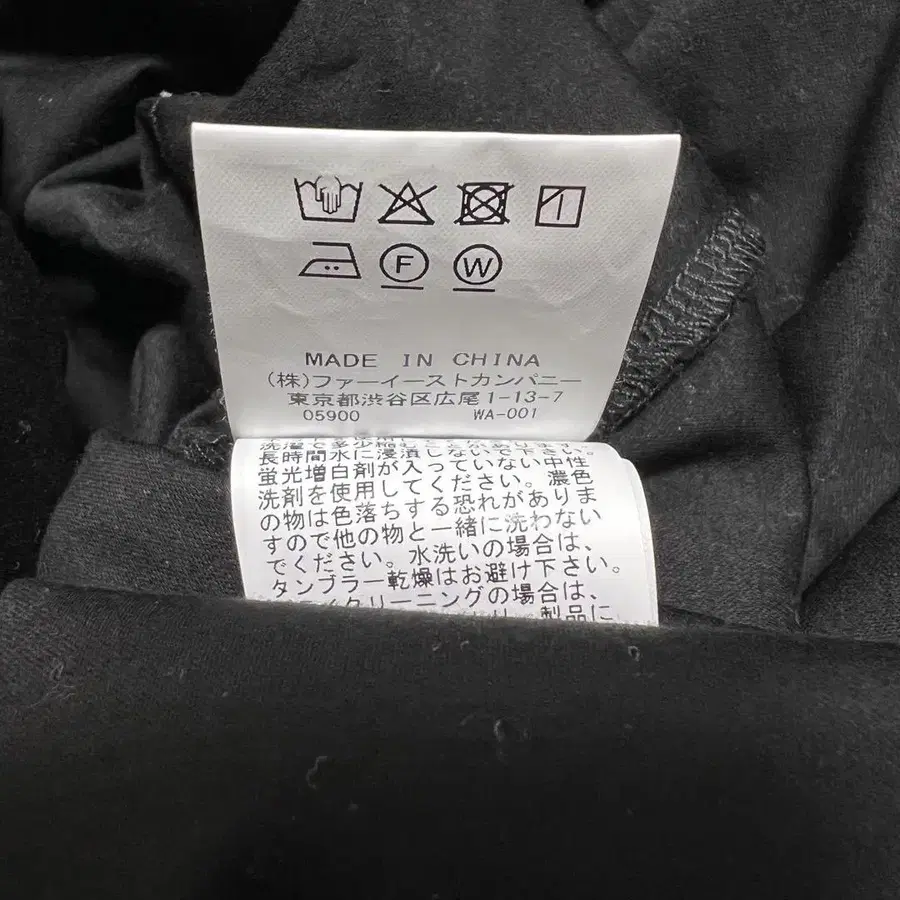 F W
MADE IN CHINA
(株)ファーイーストカンパニー
東京都渋谷区広尾1-13-7
05900 WA-001
長時間水に浸漬しないで下さい。
蛍光増白剤が入っていない中性
洗剤を使用してください。濃色
の物は色落ちする恐れがありま
すので他の物と一緒に洗わない
でください。水洗いの場合は、
タンブラー乾燥はお避け下さい。
クリーニングの場合は、
製品に